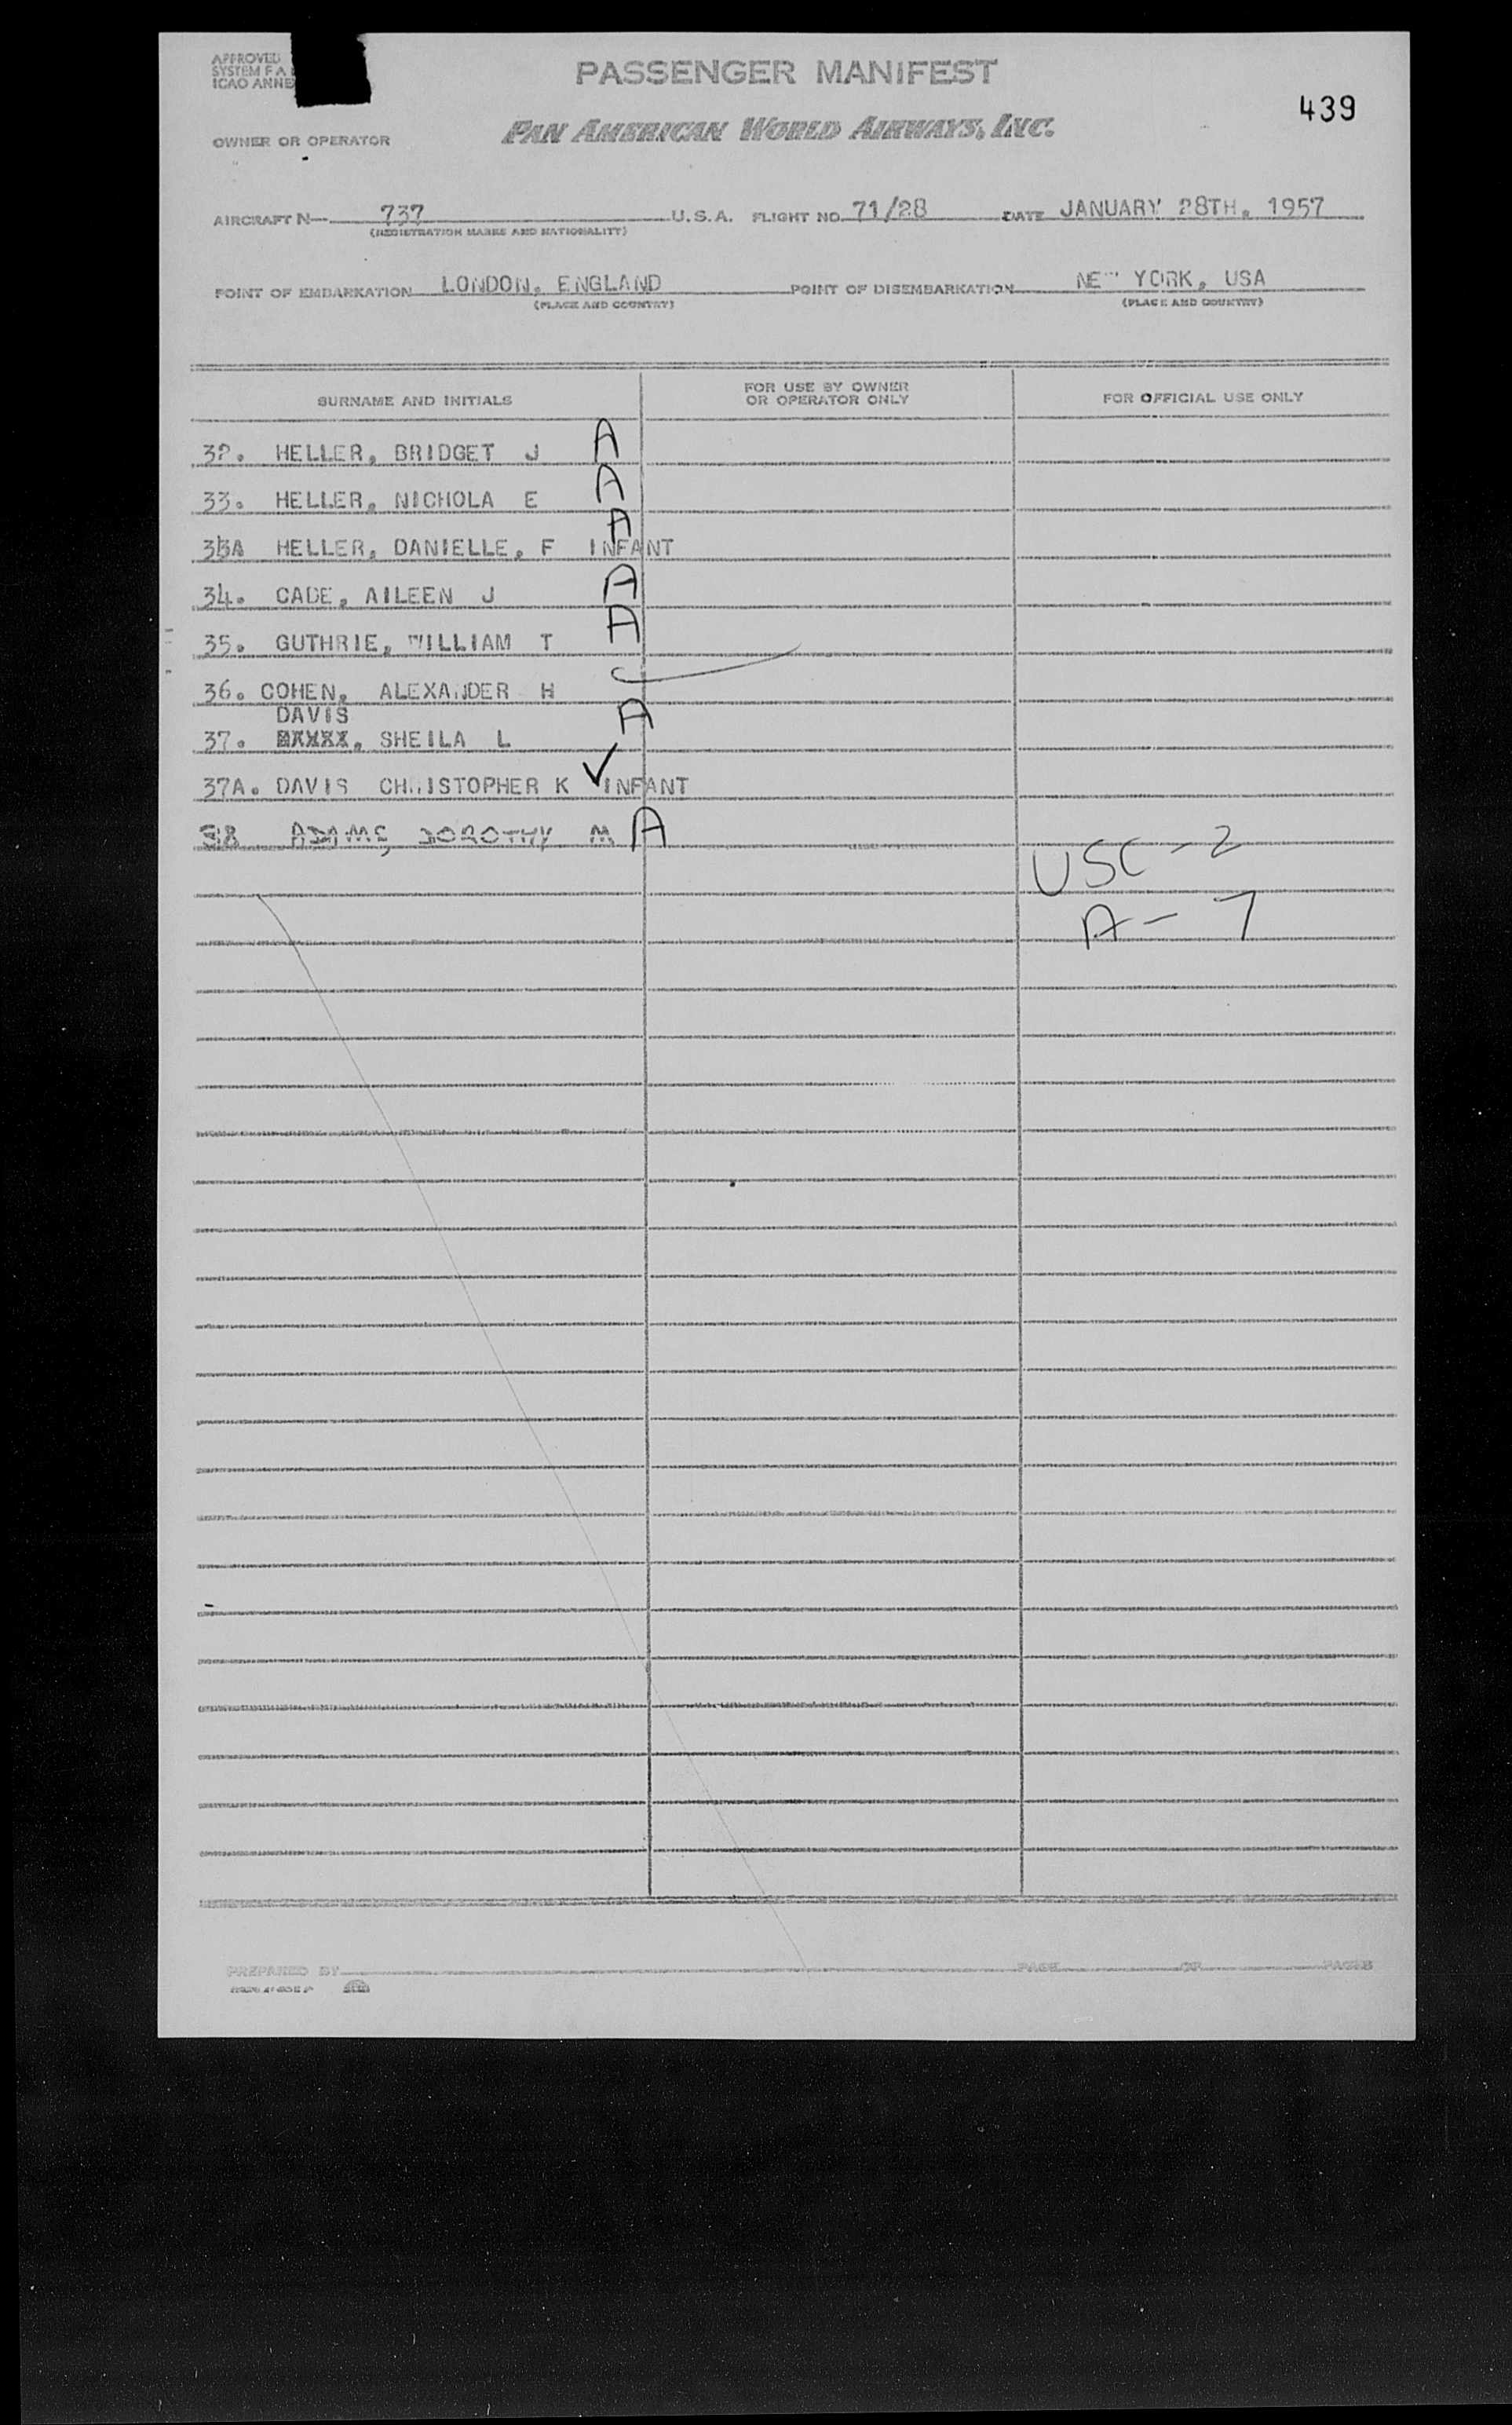 APPROVED
SYSTEM F A
ICAO ANNE
PASSENGER MANIFEST
439
OWNER OR OPERATOR
PAN AMERICAN WORLD AIRWAYS, INC.
AIRCRAFT N— 737 U.S.A. FLIGHT NO. 71/28 DATE JANUARY 28TH, 1957
(REGISTRATION MARKS AND NATIONALITY)
POINT OF EMBARKATION LONDON, ENGLAND POINT OF DISEMBARKATION NE YORK, USA
(PLACE AND COUNTRY) (PLACE AND COUNTRY)
SURNAME AND INITIALS FOR USE BY OWNER OR OPERATOR ONLY FOR OFFICIAL USE ONLY
32. HELLER, BRIDGET J A
33. HELLER, NICHOLA E A
33A HELLER, DANIELLE, F INFANT A
34. CADE, AILEEN J A
35. GUTHRIE, WILLIAM T A
36. COHEN, ALEXANDER H
DAVIS
37. , SHEILA L A
37A. DAVIS CHRISTOPHER K ✓ INFANT
38 ADAMS, DOROTHY M A
USC - 2
A - 7
PREPARED BY PAGE OF PAGES